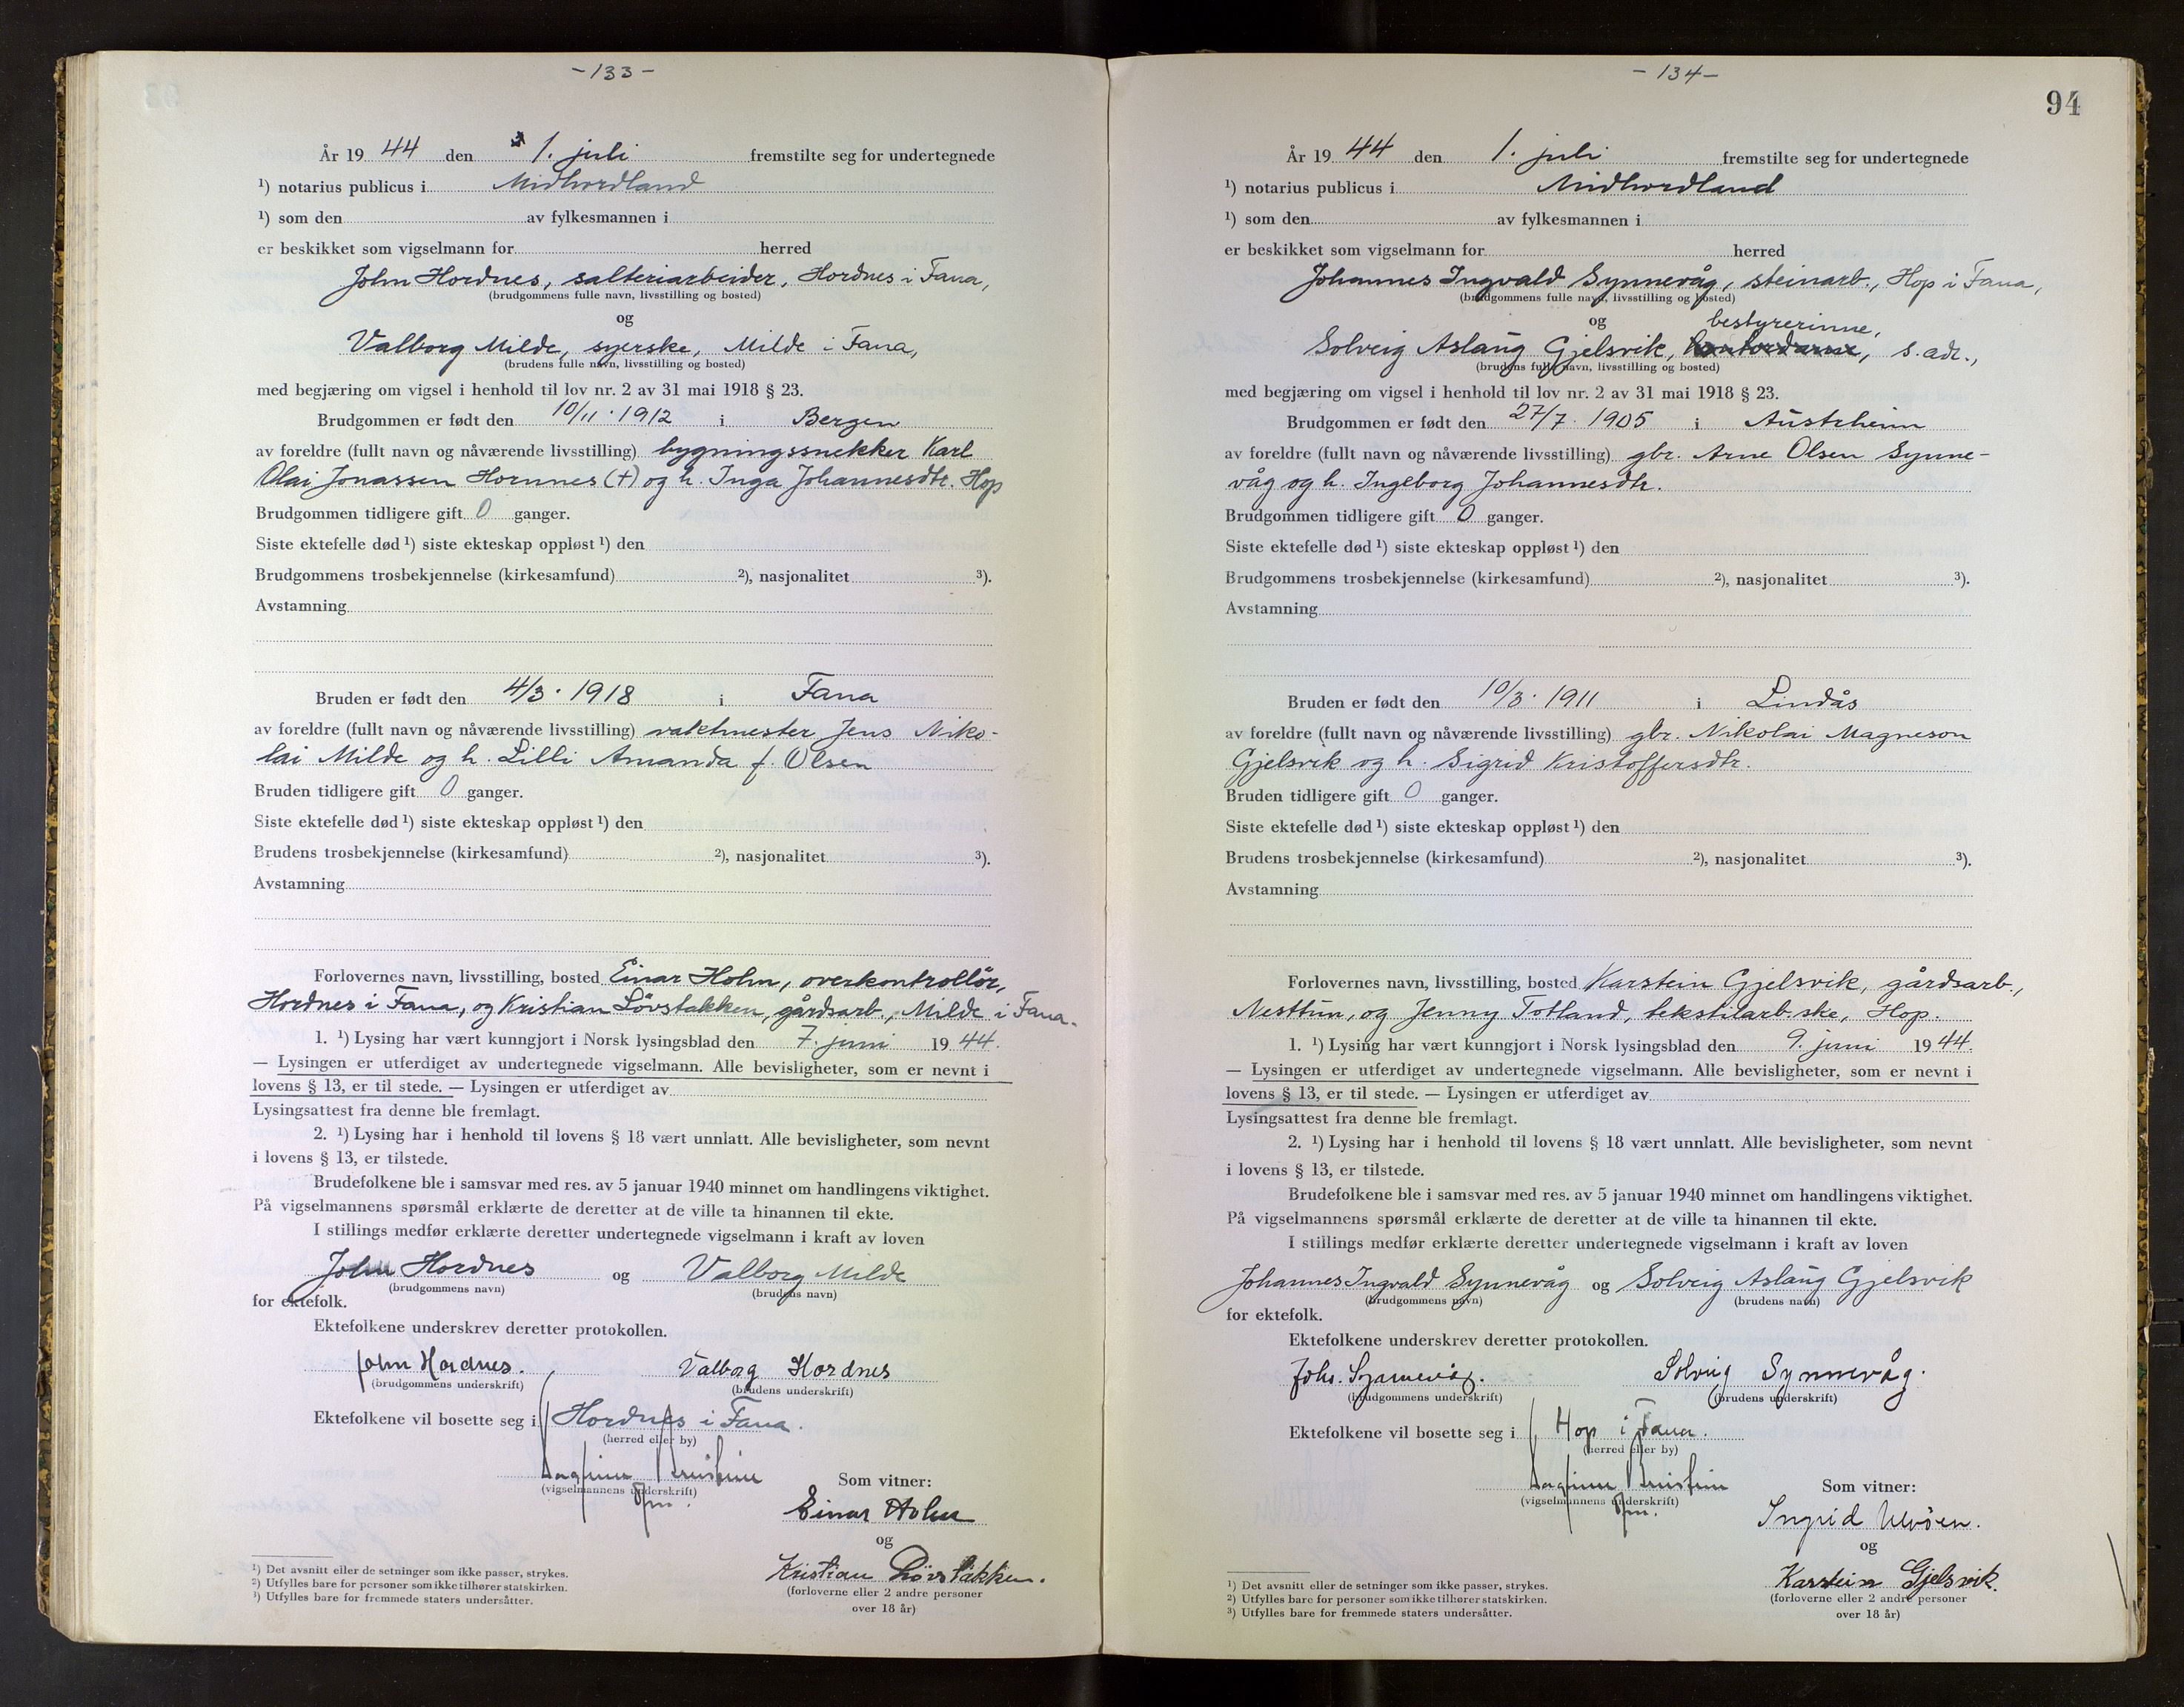 -133-
År 19 44 den 1. juli fremstilte seg for undertegnede
¹) notarius publicus i Midhordland
¹) som den av fylkesmannen i
er beskikket som vigselmann for herred
John Hordnes, salteriarbeider, Hordnes i Fana,
(brudgommens fulle navn, livsstilling og bosted)
og
Valborg Milde, syerske, Milde i Fana,
(brudens fulle navn, livsstilling og bosted)
med begjæring om vigsel i henhold til lov nr. 2 av 31 mai 1918 § 23.
Brudgommen er født den 10/11. 1912 i Bergen
av foreldre (fullt navn og nåværende livsstilling) bygningssnekker Karl
Olai Jonassen Hornnes (+) og h. Inga Johannesdtr. Hop
Brudgommen tidligere gift 0 ganger.
Siste ektefelle død ¹) siste ekteskap oppløst ¹) den
Brudgommens trosbekjennelse (kirkesamfund) ²), nasjonalitet ³).
Avstamning
Bruden er født den 4/3. 1918 i Fana
av foreldre (fullt navn og nåværende livsstilling) vaktmester Jens Niko-
lai Milde og h. Lilli Amanda f. Olsen
Bruden tidligere gift 0 ganger.
Siste ektefelle død ¹) siste ekteskap oppløst ¹) den
Brudens trosbekjennelse (kirkesamfund) ²), nasjonalitet ³).
Avstamning
Forlovernes navn, livsstilling, bosted Einar Holm, overkontrollör,
Hordnes i Fana, og Kristian Lövstakken, gårdsarb., Milde i Fana.
1. ¹) Lysing har vært kunngjort i Norsk lysingsblad den 7. juni 19 44.
— Lysingen er utferdiget av undertegnede vigselmann. Alle bevisligheter, som er nevnt i
lovens § 13, er til stede. — Lysingen er utferdiget av
Lysingsattest fra denne ble fremlagt.
2. ¹) Lysing har i henhold til lovens § 18 vært unnlatt. Alle bevisligheter, som nevnt
i lovens § 13, er tilstede.
Brudefolkene ble i samsvar med res. av 5 januar 1940 minnet om handlingens viktighet.
På vigselmannens spørsmål erklærte de deretter at de ville ta hinannen til ekte.
I stillings medfør erklærte deretter undertegnede vigselmann i kraft av loven
John Hordnes og Valborg Milde
(brudgommens navn) (brudens navn)
for ektefolk.
Ektefolkene underskrev deretter protokollen.
John Hordnes. Valborg Hordnes
(brudgommens underskrift) (brudens underskrift)
Ektefolkene vil bosette seg i Hordnes i Fana.
(herred eller by)
(vigselmannens underskrift)
Som vitner:
Einar Holm
og
Kristian Lövstakken.
(forloverne eller 2 andre personer
over 18 år)
¹) Det avsnitt eller de setninger som ikke passer, strykes.
²) Utfylles bare for personer som ikke tilhører statskirken.
³) Utfylles bare for fremmede staters undersåtter.
-134-
94
År 19 44 den 1. juli fremstilte seg for undertegnede
¹) notarius publicus i Midhordland
¹) som den av fylkesmannen i
er beskikket som vigselmann for herred
Johannes Ingvald Synnevåg, steinarb., Hop i Fana,
(brudgommens fulle navn, livsstilling og bosted)
og
bestyrerinne,
Solveig Aslaug Gjelsvik, s. adr.,
(brudens fulle navn, livsstilling og bosted)
med begjæring om vigsel i henhold til lov nr. 2 av 31 mai 1918 § 23.
Brudgommen er født den 27/7. 1905 i Austrheim
av foreldre (fullt navn og nåværende livsstilling) gbr. Arne Olsen Synne-
våg og h. Ingeborg Johannesdtr.
Brudgommen tidligere gift 0 ganger.
Siste ektefelle død ¹) siste ekteskap oppløst ¹) den
Brudgommens trosbekjennelse (kirkesamfund) ²), nasjonalitet ³).
Avstamning
Bruden er født den 10/3. 1911 i Lindås
av foreldre (fullt navn og nåværende livsstilling) gbr. Nikolai Magneson
Gjelsvik og h. Sigrid Kristoffersdtr.
Bruden tidligere gift 0 ganger.
Siste ektefelle død ¹) siste ekteskap oppløst ¹) den
Brudens trosbekjennelse (kirkesamfund) ²), nasjonalitet ³).
Avstamning
Forlovernes navn, livsstilling, bosted Karstein Gjelsvik, gårdsarb.,
Nesttun, og Jenny Totland, tekstilarb.ske, Hop.
1. ¹) Lysing har vært kunngjort i Norsk lysingsblad den 9. juni 19 44.
— Lysingen er utferdiget av undertegnede vigselmann. Alle bevisligheter, som er nevnt i
lovens § 13, er til stede. — Lysingen er utferdiget av
Lysingsattest fra denne ble fremlagt.
2. ¹) Lysing har i henhold til lovens § 18 vært unnlatt. Alle bevisligheter, som nevnt
i lovens § 13, er tilstede.
Brudefolkene ble i samsvar med res. av 5 januar 1940 minnet om handlingens viktighet.
På vigselmannens spørsmål erklærte de deretter at de ville ta hinannen til ekte.
I stillings medfør erklærte deretter undertegnede vigselmann i kraft av loven
Johannes Ingvald Synnevåg og Solveig Aslaug Gjelsvik
(brudgommens navn) (brudens navn)
for ektefolk.
Ektefolkene underskrev deretter protokollen.
Johs. Synnevåg. Solveig Synnevåg.
(brudgommens underskrift) (brudens underskrift)
Ektefolkene vil bosette seg i Hop i Fana.
(herred eller by)
(vigselmannens underskrift)
Som vitner:
Ingrid Ulvöen.
og
Karstein Gjelsvik.
(forloverne eller 2 andre personer
over 18 år)
¹) Det avsnitt eller de setninger som ikke passer, strykes.
²) Utfylles bare for personer som ikke tilhører statskirken.
³) Utfylles bare for fremmede staters undersåtter.